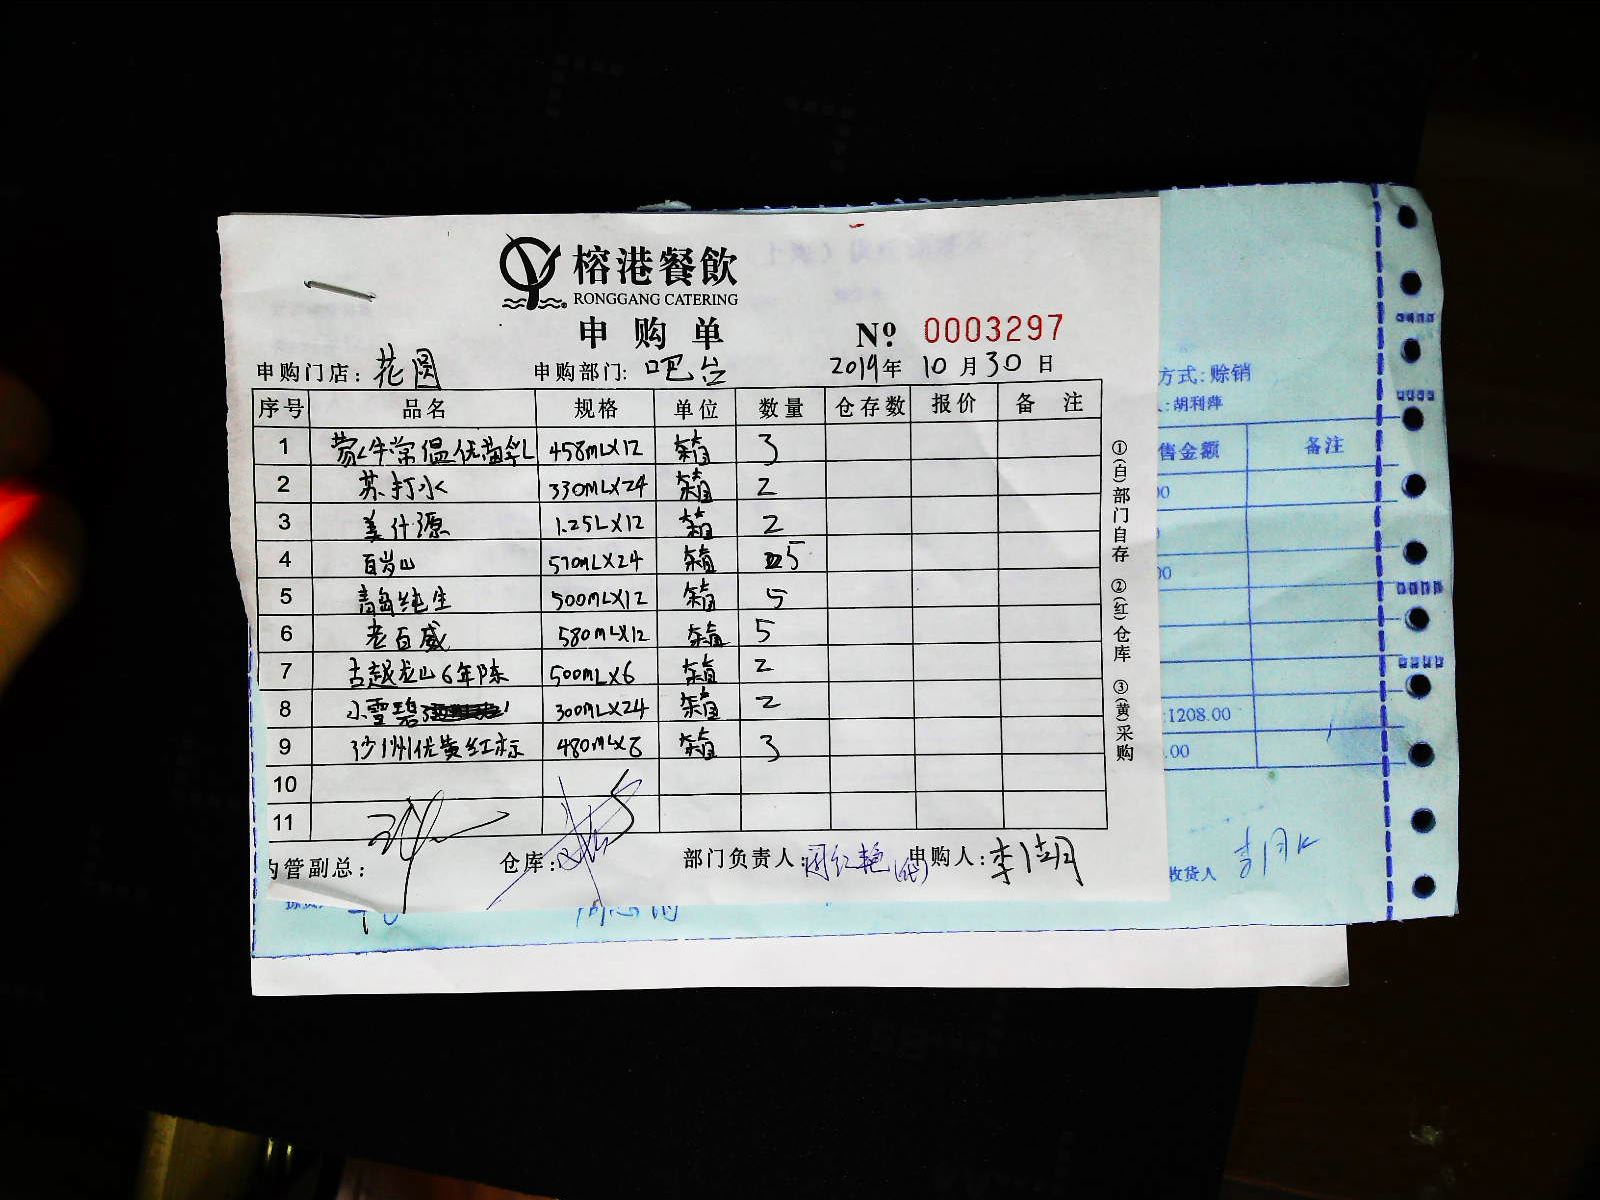 榕港餐飲
RONGGANG CATERING
申购单
№ 0003297
申购门店: 花园 申购部门: 吧台 2019年 10月30日
序号 品名 规格 单位 数量 仓存数 报价 备 注
1 蒙牛常温优菌乳 458mLX12 箱 3
2 苏打水 330mLX24 箱 2
3 美汁源 1.25LX12 箱 2
4 百岁山 570mLX24 箱 5
5 青岛纯生 500mLX12 箱 5
6 老百威 580mLX12 箱 5
7 古越龙山6年陈 500mLX6 箱 2
8 小雪碧 300mLX24 箱 2
9 沙州优黄红标 480mLX8 箱 3
10
11
内管副总: 仓库: 部门负责人: 申购人:
①(白)部门自存 ②(红)仓库 ③(黄)采购
方式: 赊销
胡利萍
售金额 备注
1208.00
.00
收货人